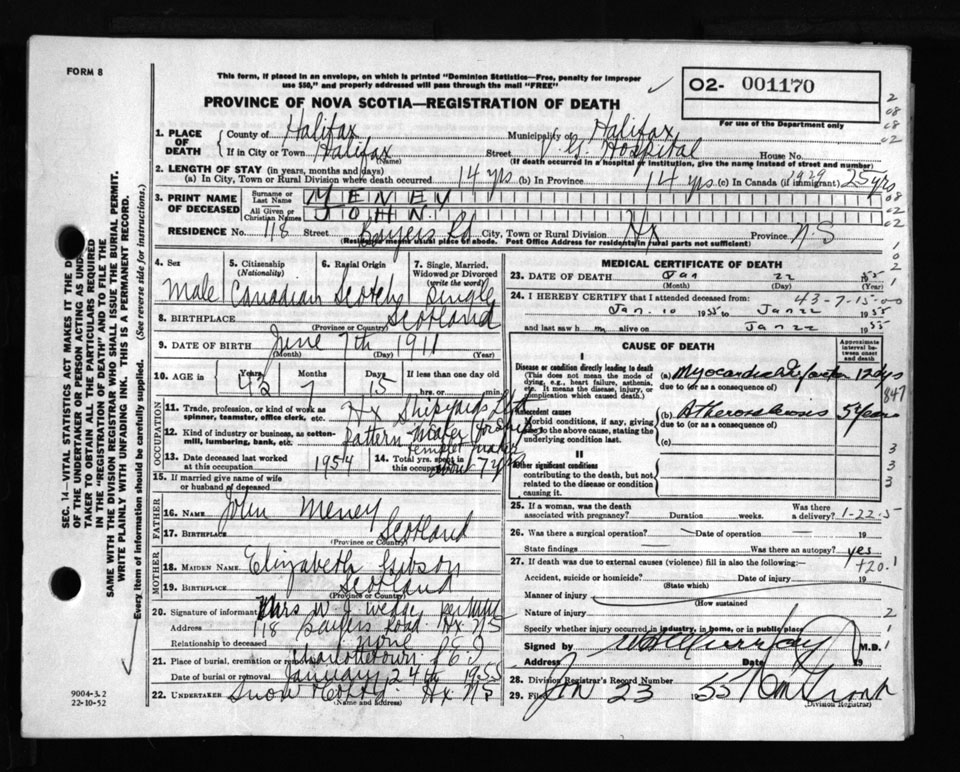 FORM 8
This form, if placed in an envelope, on which is printed "Dominion Statistics—Free, penalty for improper
use $50," and properly addressed will pass through the mail "FREE"
O2- 001170
For use of the Department only
PROVINCE OF NOVA SCOTIA—REGISTRATION OF DEATH
1. PLACE OF DEATH
County of Halifax Municipality of Halifax
If in City or Town Halifax (Name) Street V. G. Hospital House No.
(If death occurred in a hospital or institution, give the name instead of street and number)
2. LENGTH OF STAY (in years, months and days)
(a) In City, Town or Rural Division where death occurred 14 yrs (b) In Province 14 yrs (c) In Canada (if immigrant) 1929 25 yrs
3. PRINT NAME OF DECEASED
Surname or Last Name MENEY
All Given or Christian Names JOHN.
RESIDENCE No. 118 Street Bayers Rd City, Town or Rural Division Hx Province N.S
(Residence means usual place of abode. Post Office Address for residents in rural parts not sufficient)
4. Sex Male
5. Citizenship (Nationality) Canadian
6. Racial Origin Scotch
7. Single, Married, Widowed or Divorced (write the word) Single
8. BIRTHPLACE Scotland
(Province or Country)
9. DATE OF BIRTH June 7th 1911
(Month) (Day) (Year)
10. AGE in Years 43 Months 7 Days 15 If less than one day old
hrs. or min.
OCCUPATION
11. Trade, profession, or kind of work as spinner, teamster, office clerk, etc. Hx Shipyards
12. Kind of industry or business, as cotton-mill, lumbering, bank, etc. Pattern Maker
13. Date deceased last worked at this occupation 1954
14. Total yrs. spent in this occupation about 7 yrs
15. If married give name of wife or husband of deceased
FATHER
16. NAME John Meney
17. BIRTHPLACE Scotland
(Province or Country)
MOTHER
18. MAIDEN NAME Elizabeth Gibson
19. BIRTHPLACE Scotland
(Province or Country)
20. Signature of informant Mrs W. J.
Address 118 Bayers Road Hx NS
Relationship to deceased none
21. Place of burial, cremation or removal Charlottetown P.E.I
Date of burial or removal January 24th 1955
22. UNDERTAKER Snow & Co Ltd. Hx NS
(Name and Address)
9004-3.2
22-10-52
MEDICAL CERTIFICATE OF DEATH
23. DATE OF DEATH Jan 22 1955
(Month) (Day)
43-7-15-00
24. I HEREBY CERTIFY that I attended deceased from:
Jan. 10 1955 to Jan 22 1955
and last saw h m alive on Jan 22 1955
CAUSE OF DEATH
Approximate interval between onset and death
I
Disease or condition directly leading to death
(This does not mean the mode of dying, e.g., heart failure, asthenia, etc. It means the disease, injury, or complication which caused death.)
(a) Myocardial Infarction 12 dys
due to (or as a consequence of)
Antecedent causes
Morbid conditions, if any, giving rise to the above cause, stating the underlying condition last.
(b) Atherosclerosis 5 years
due to (or as a consequence of)
(c)
II
Other significant conditions
contributing to the death, but not related to the disease or condition causing it.
25. If a woman, was the death associated with pregnancy? Duration weeks. Was there a delivery? 1-22-5
26. Was there a surgical operation? Date of operation 19
State findings Was there an autopsy? yes
27. If death was due to external causes (violence) fill in also the following:
Accident, suicide or homicide? Date of injury 19
(State which)
Manner of injury
(How sustained
Nature of injury
Specify whether injury occurred in industry, in home, or in public place
Signed by M.D.
Address Date 19
28. Division Registrar's Record Number
29. Filed Jan 23 1955
(Division Registrar)
SEC. 14—VITAL STATISTICS ACT MAKES IT THE
OF THE UNDERTAKER OR PERSON ACTING AS
TAKER TO OBTAIN ALL THE PARTICULARS REQUIRED
IN THE "REGISTRATION OF DEATH" AND TO FILE THE
SAME WITH THE DIVISION REGISTRAR WHO SHALL ISSUE THE BURIAL PERMIT.
WRITE PLAINLY WITH UNFADING INK. THIS IS A PERMANENT RECORD.
Every item of information should be carefully supplied. (See reverse side for instructions.)